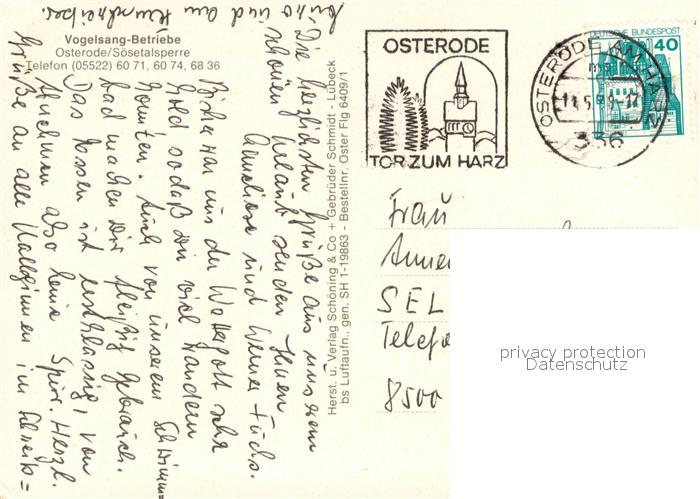 Vogelsang-Betriebe
Osterode/Sösetalsperre
Telefon (05522) 60 71, 60 74, 68 36
Die herzlichsten Grüße aus unserem
schönen Urlaub senden Ihnen
Anneliese und Werner Fuchs.
Bisher war uns der Wettergott sehr
hold sodaß wir viel wandern
konnten. Auch von unserem Schwimm=
bad machen wir fleißig Gebrauch.
Das Essen ist erstklassig, von
Abnehmen also keine Spur. Herzl.
Grüße an alle Kolleginnen im Schreib=
büro und am Fernschreiber.
Herst. u. Verlag Schöning & Co + Gebrüder Schmidt - Lübeck
bs Luftaufn., gen. SH 1-19863 - Bestellnr. Oster Flg 6409/1
OSTERODE
TOR ZUM HARZ
OSTERODE AM HARZ
336
DEUTSCHE BUNDESPOST
40
Frau
SEL
Telefo
8500
privacy protection
Datenschutz